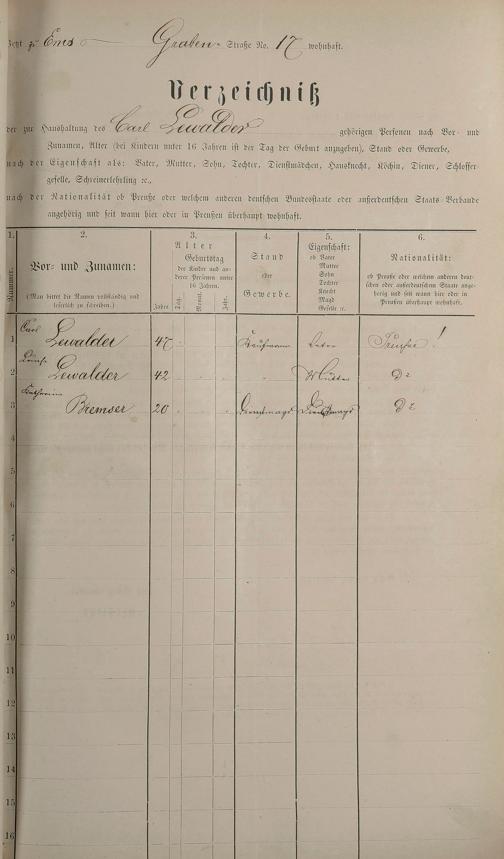 Jetzt zu Ems Graben-Straße No. 17 wohnhaft.
Verzeichniß
der zur Haushaltung des Carl Lewalder gehörigen Personen nach Vor- und
Zunamen, Alter (bei Kindern unter 16 Jahren ist der Tag der Geburt anzugeben), Stand oder Gewerbe,
nach der Eigenschaft als: Vater, Mutter, Sohn, Tochter, Dienstmädchen, Hausknecht, Köchin, Diener, Schlosser-
geselle, Schreinerlehrling ꝛc.,
nach der Nationalität ob Preuße oder welchem anderen deutschen Bundesstaate oder außerdeutschen Staats-Verbande
angehörig und seit wann hier oder in Preußen überhaupt wohnhaft.
1. 2. 3. 4. 5. 6.
Nummer.
Vor- und Zunamen:
(Man bittet die Namen vollständig und
leserlich zu schreiben.)
Alter
Geburtstag
der Kinder und an-
derer Personen unter
16 Jahren.
Jahre Tag. Monat. Jahr.
Stand
oder
Gewerbe.
Eigenschaft:
ob Vater
Mutter
Sohn
Tochter
Knecht
Magd
Geselle ꝛc.
Nationalität:
ob Preuße oder welchem anderen deut-
schen oder außerdeutschen Staate ange-
hörig und seit wann hier oder in
Preußen überhaupt wohnhaft.
Carl
1 Lewalder 47 Kaufmann Vater Preuße!
Louise
2 Lewalder 42 " Mutter do
Katharina
3 Bremser 20 Dienstmagd Dienstmagd do
4
5
6
7
8
9
10
11
12
13
14
15
16